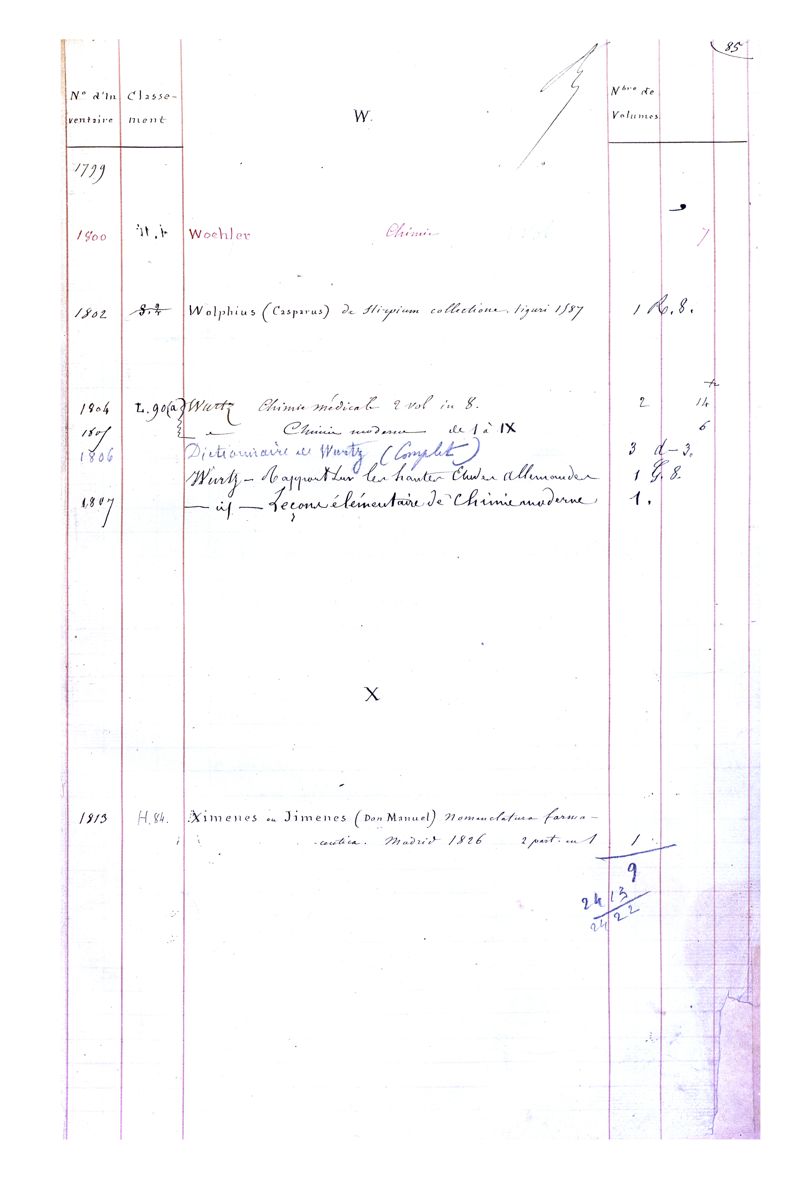 85
N° d'In Classe- Nbre de
ventaire ment W. Volumes
1799
1800 Woehler Chimie 7
1802 S.2 Wolphius (Casparus) de Stirpium collectione. tiguri 1587 1 R. 8.
1804 L.90(a) Wurtz Chimie médicale 2 vol in 8. 2 14
1805 Chimie moderne de 1 à IX 6
1806 Dictionnaire de Wurtz (Complet) 3 d-3.
Wurtz - Rapport sur les hautes Etudes allemandes 1 G. 8.
1807 — id — Leçons élémentaire de Chimie moderne 1.
X
1813 H.84. Ximenes ou Jimenes (Don Manuel) Nomenclatura farma-
ceutica. Madrid 1826 2 part. en 1 1
9
2413
2422